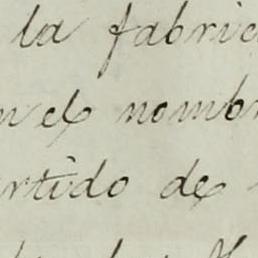 la fabric
n el nombr
rtido de